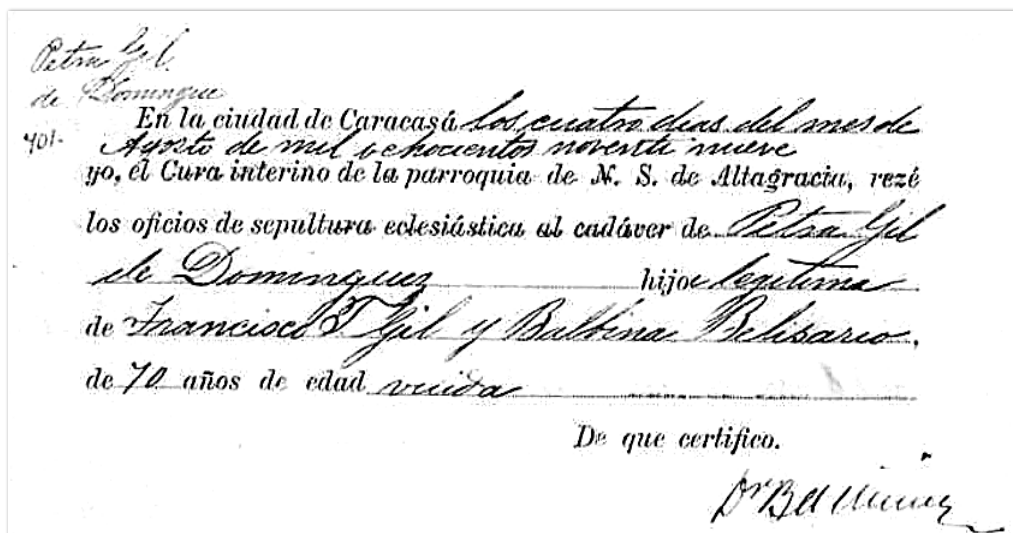 Petra Gil
de Domingue
401-
En la ciudad de Caracas á los cuatro dias del mes de
Agosto de mil ochocientos noventa nueve
yo, el Cura interino de la parroquia de N. S. de Altagracia, rezé
los oficios de sepultura eclesiástica al cadáver de Petra Gil
de Dominguez hija legitima
de Francisco T Gil y Balbina Belisario,
de 70 años de edad viuda
De que certifico.
Dr